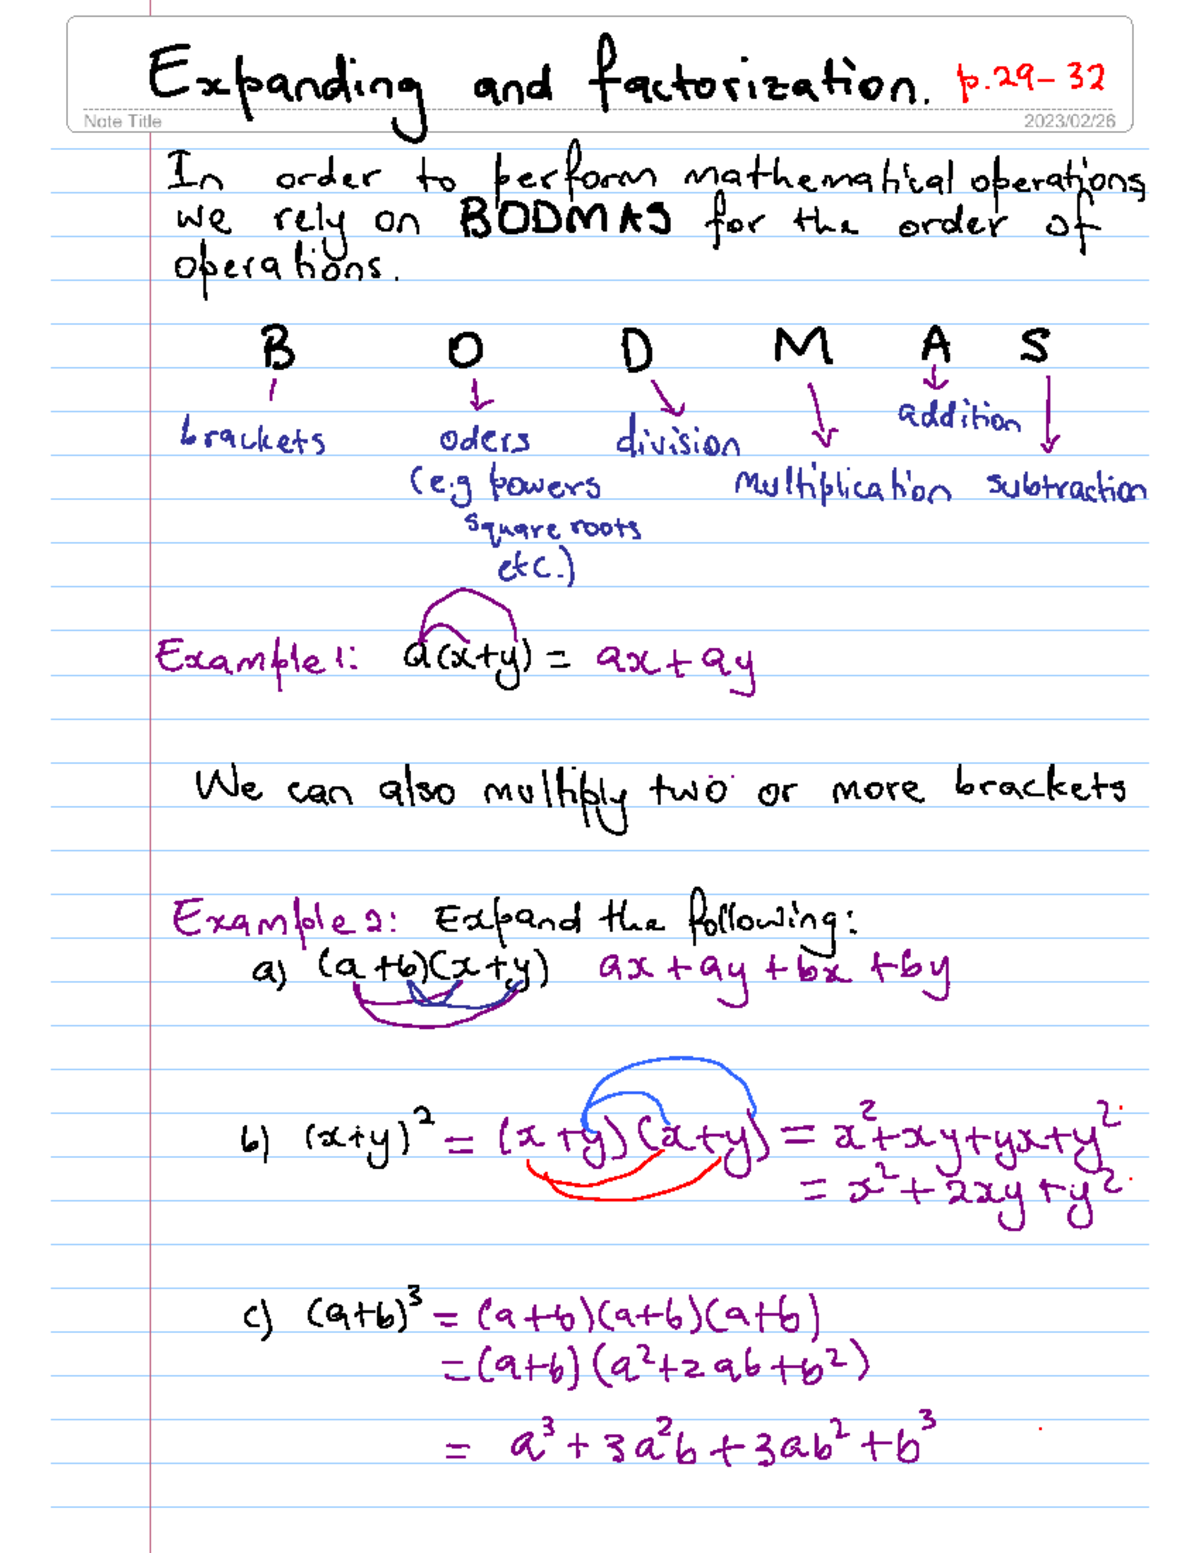 Expanding and factorization. p.29-32
Note Title 2023/02/26
In order to perform mathematical operations,
we rely on BODMAS for the order of
operations.
B O D M A S
brackets oders division multiplication addition subtraction
(e.g powers
square roots
etc.)
Example 1: a(x+y) = ax + ay
We can also multiply two or more brackets
Example 2: Expand the following:
a) (a+b)(x+y) ax + ay + bx + by
b) (x+y)² = (x+y)(x+y) = x²+xy+yx+y²
= x² + 2xy + y²
c) (a+b)³ = (a+b)(a+b)(a+b)
= (a+b)(a²+2ab+b²)
= a³ + 3a²b + 3ab² + b³